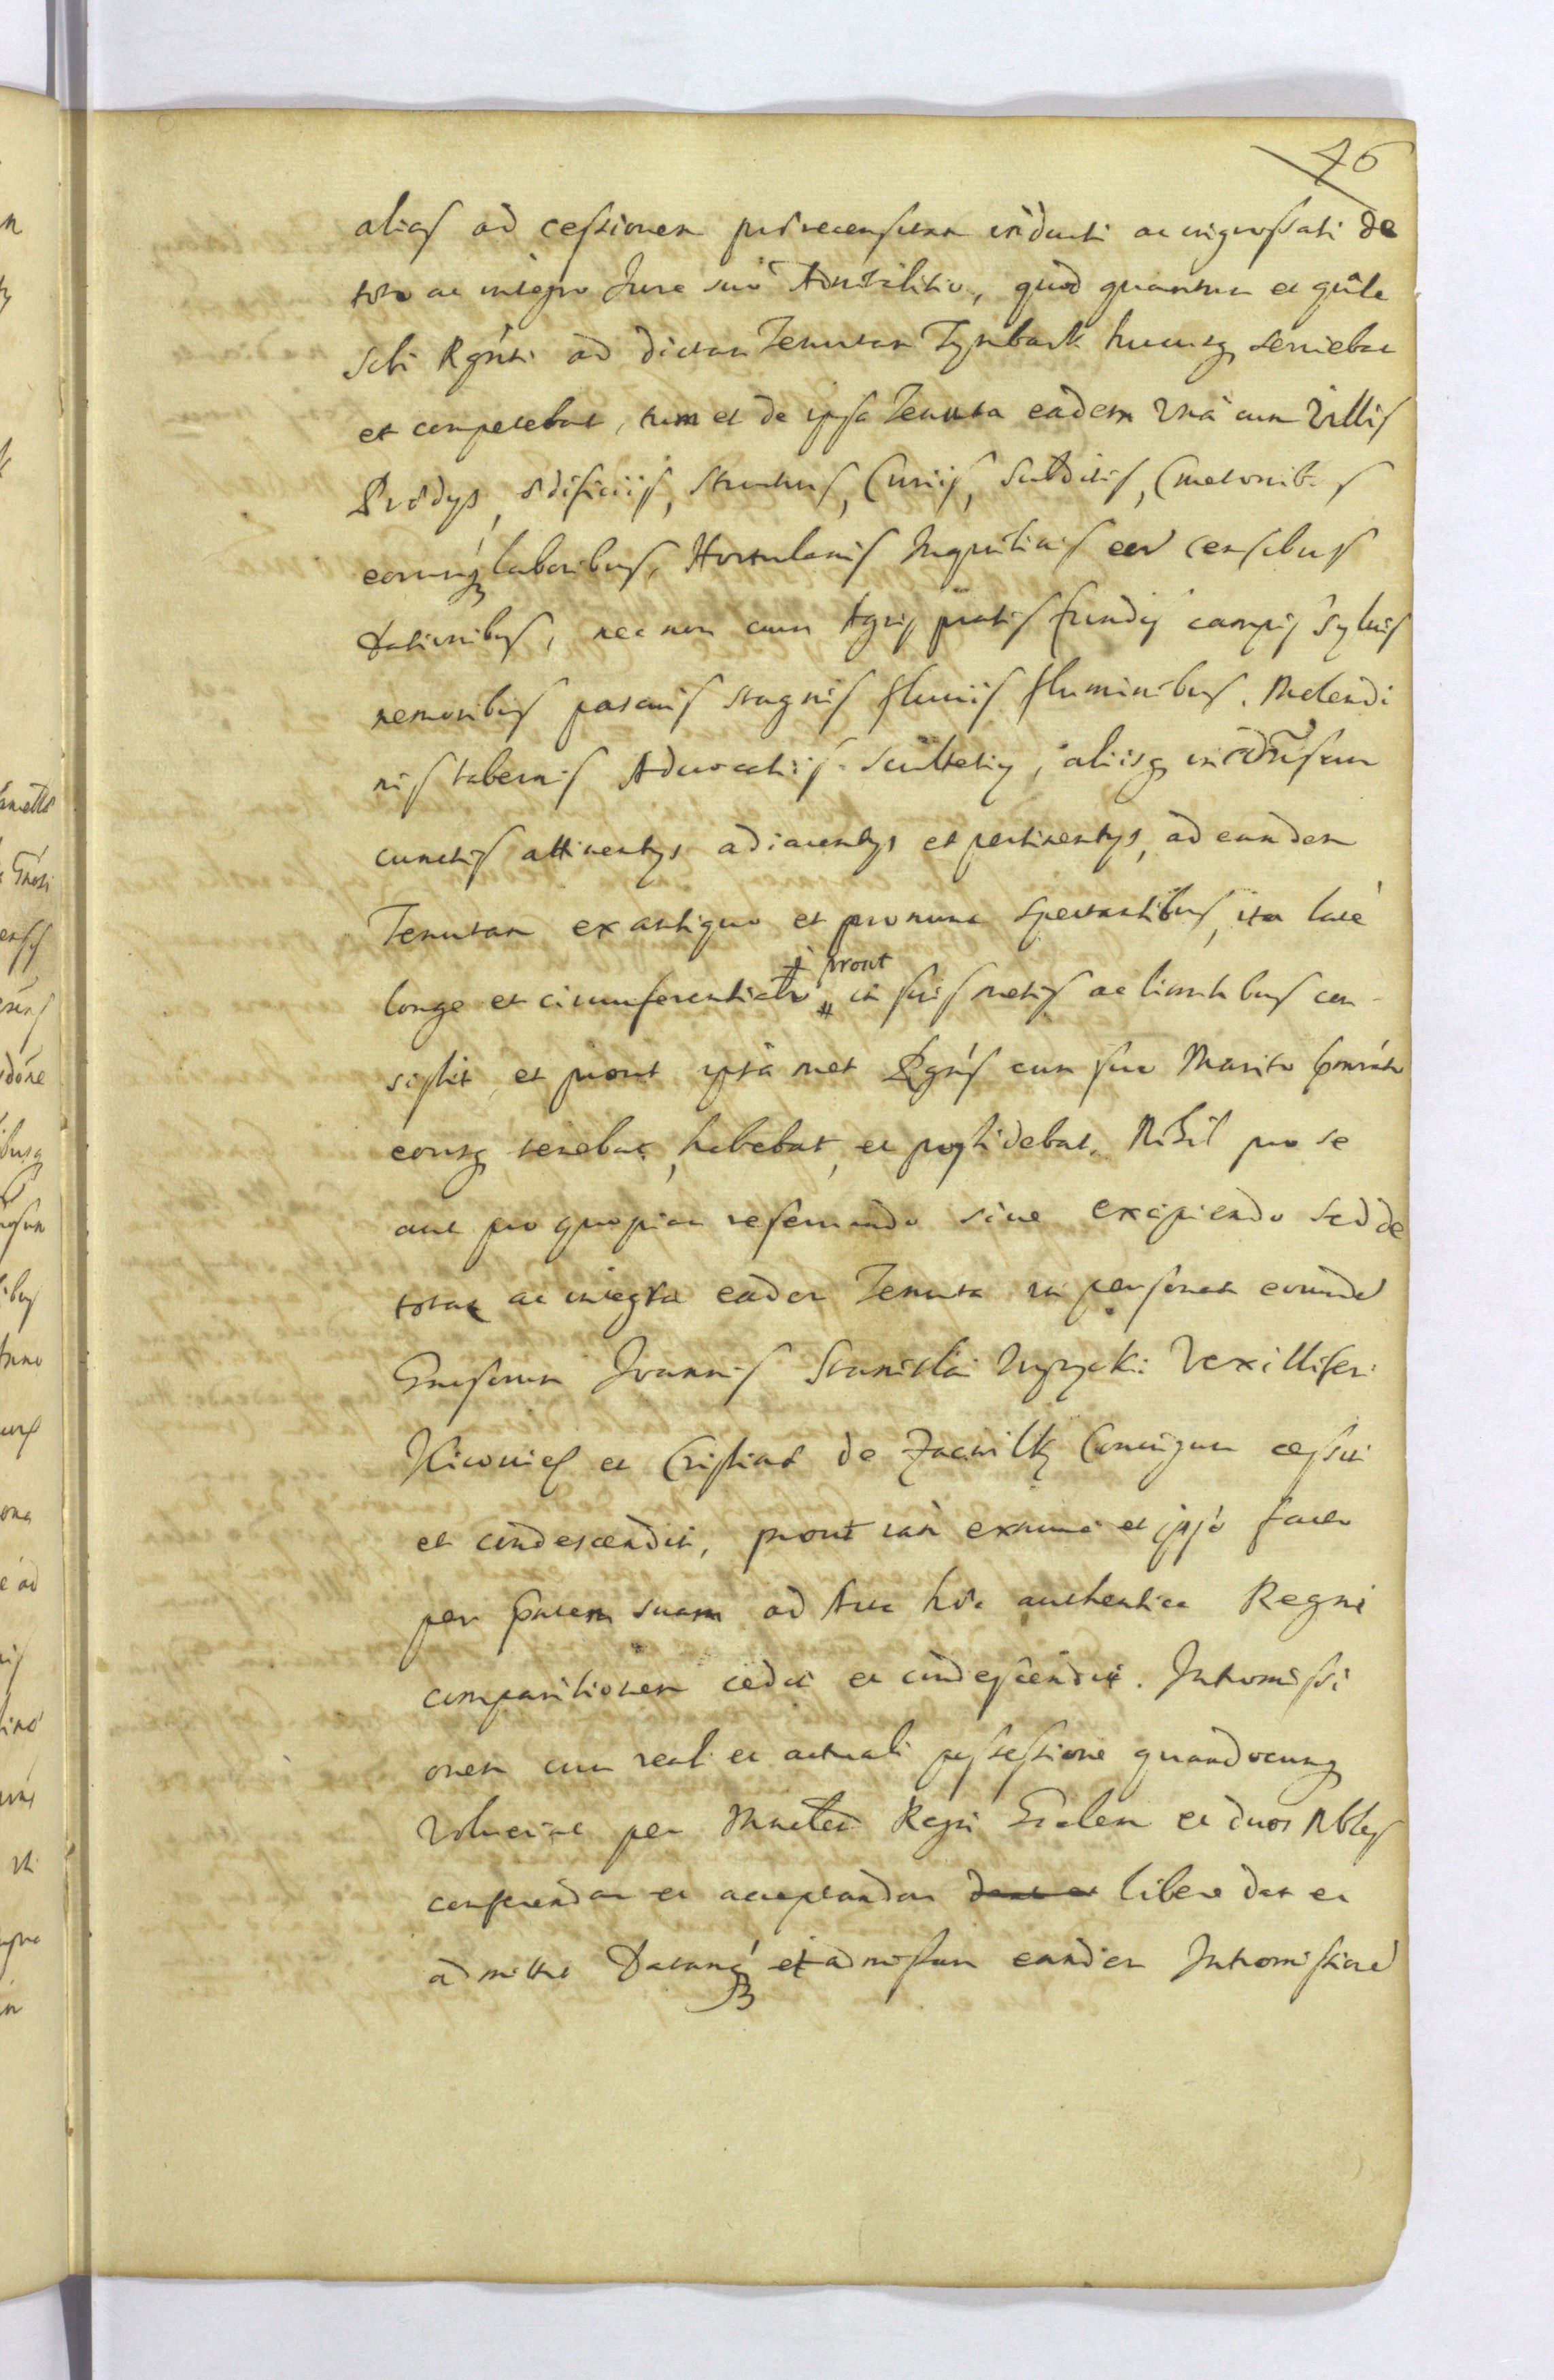 46
alias ad cessionem prærecensitam inducti ac ingrossati de
toto ac integro Jure suo Advitalitio, quod quantum et qûle
sibi Rgnti ad dictam Tenutam Tymbark hucusq serviebat
et competebat, tum et de ipsa Tenuta eadem Vna cum Villis
Prædys, ædificiis, structuris, Curiis, Subditis, Cmetonibus
eorumq laboribus, Hortulanis Inquilinis eor censibus
dationibus, nec non cum Agris pratis fundis campis syluis
nemoribus pascuis stagnis fluviis fluminibus, Molendi
nis tabernis Advocatiis Scultetys, aliisq
cunctis attinentys adiacentys et pertinentys, ad eandem
Tenutam ex antiquo et pro nunc Spectantibus, ita late
longe et circumferentialr prout in suis metis ac limitibus con-
sistit, et prout ipsa met Rgns cum suo Marito
eousq tenebat, habebat, et possidebat, Nihil pro se
aut pro quopiam reservando sive excipiendo sed de
tota ac integra eadem Tenuta in personas eorund
Gnosorum Joannis Stanislai Vexilliferi
et de Coniugum cessit
et condescendit, prout iam exnunc et ipso facto
per suam ad Acta hæc authentica Regni
comparitionem cedit et condescendit. Intromissi
onem cum reali et actuali possessione quandocunq
voluerint per Regni Gnalem et duos Nbles
conferendam et acceptandam libere dat et
admittit Datamq et admissam eandem Intromissione